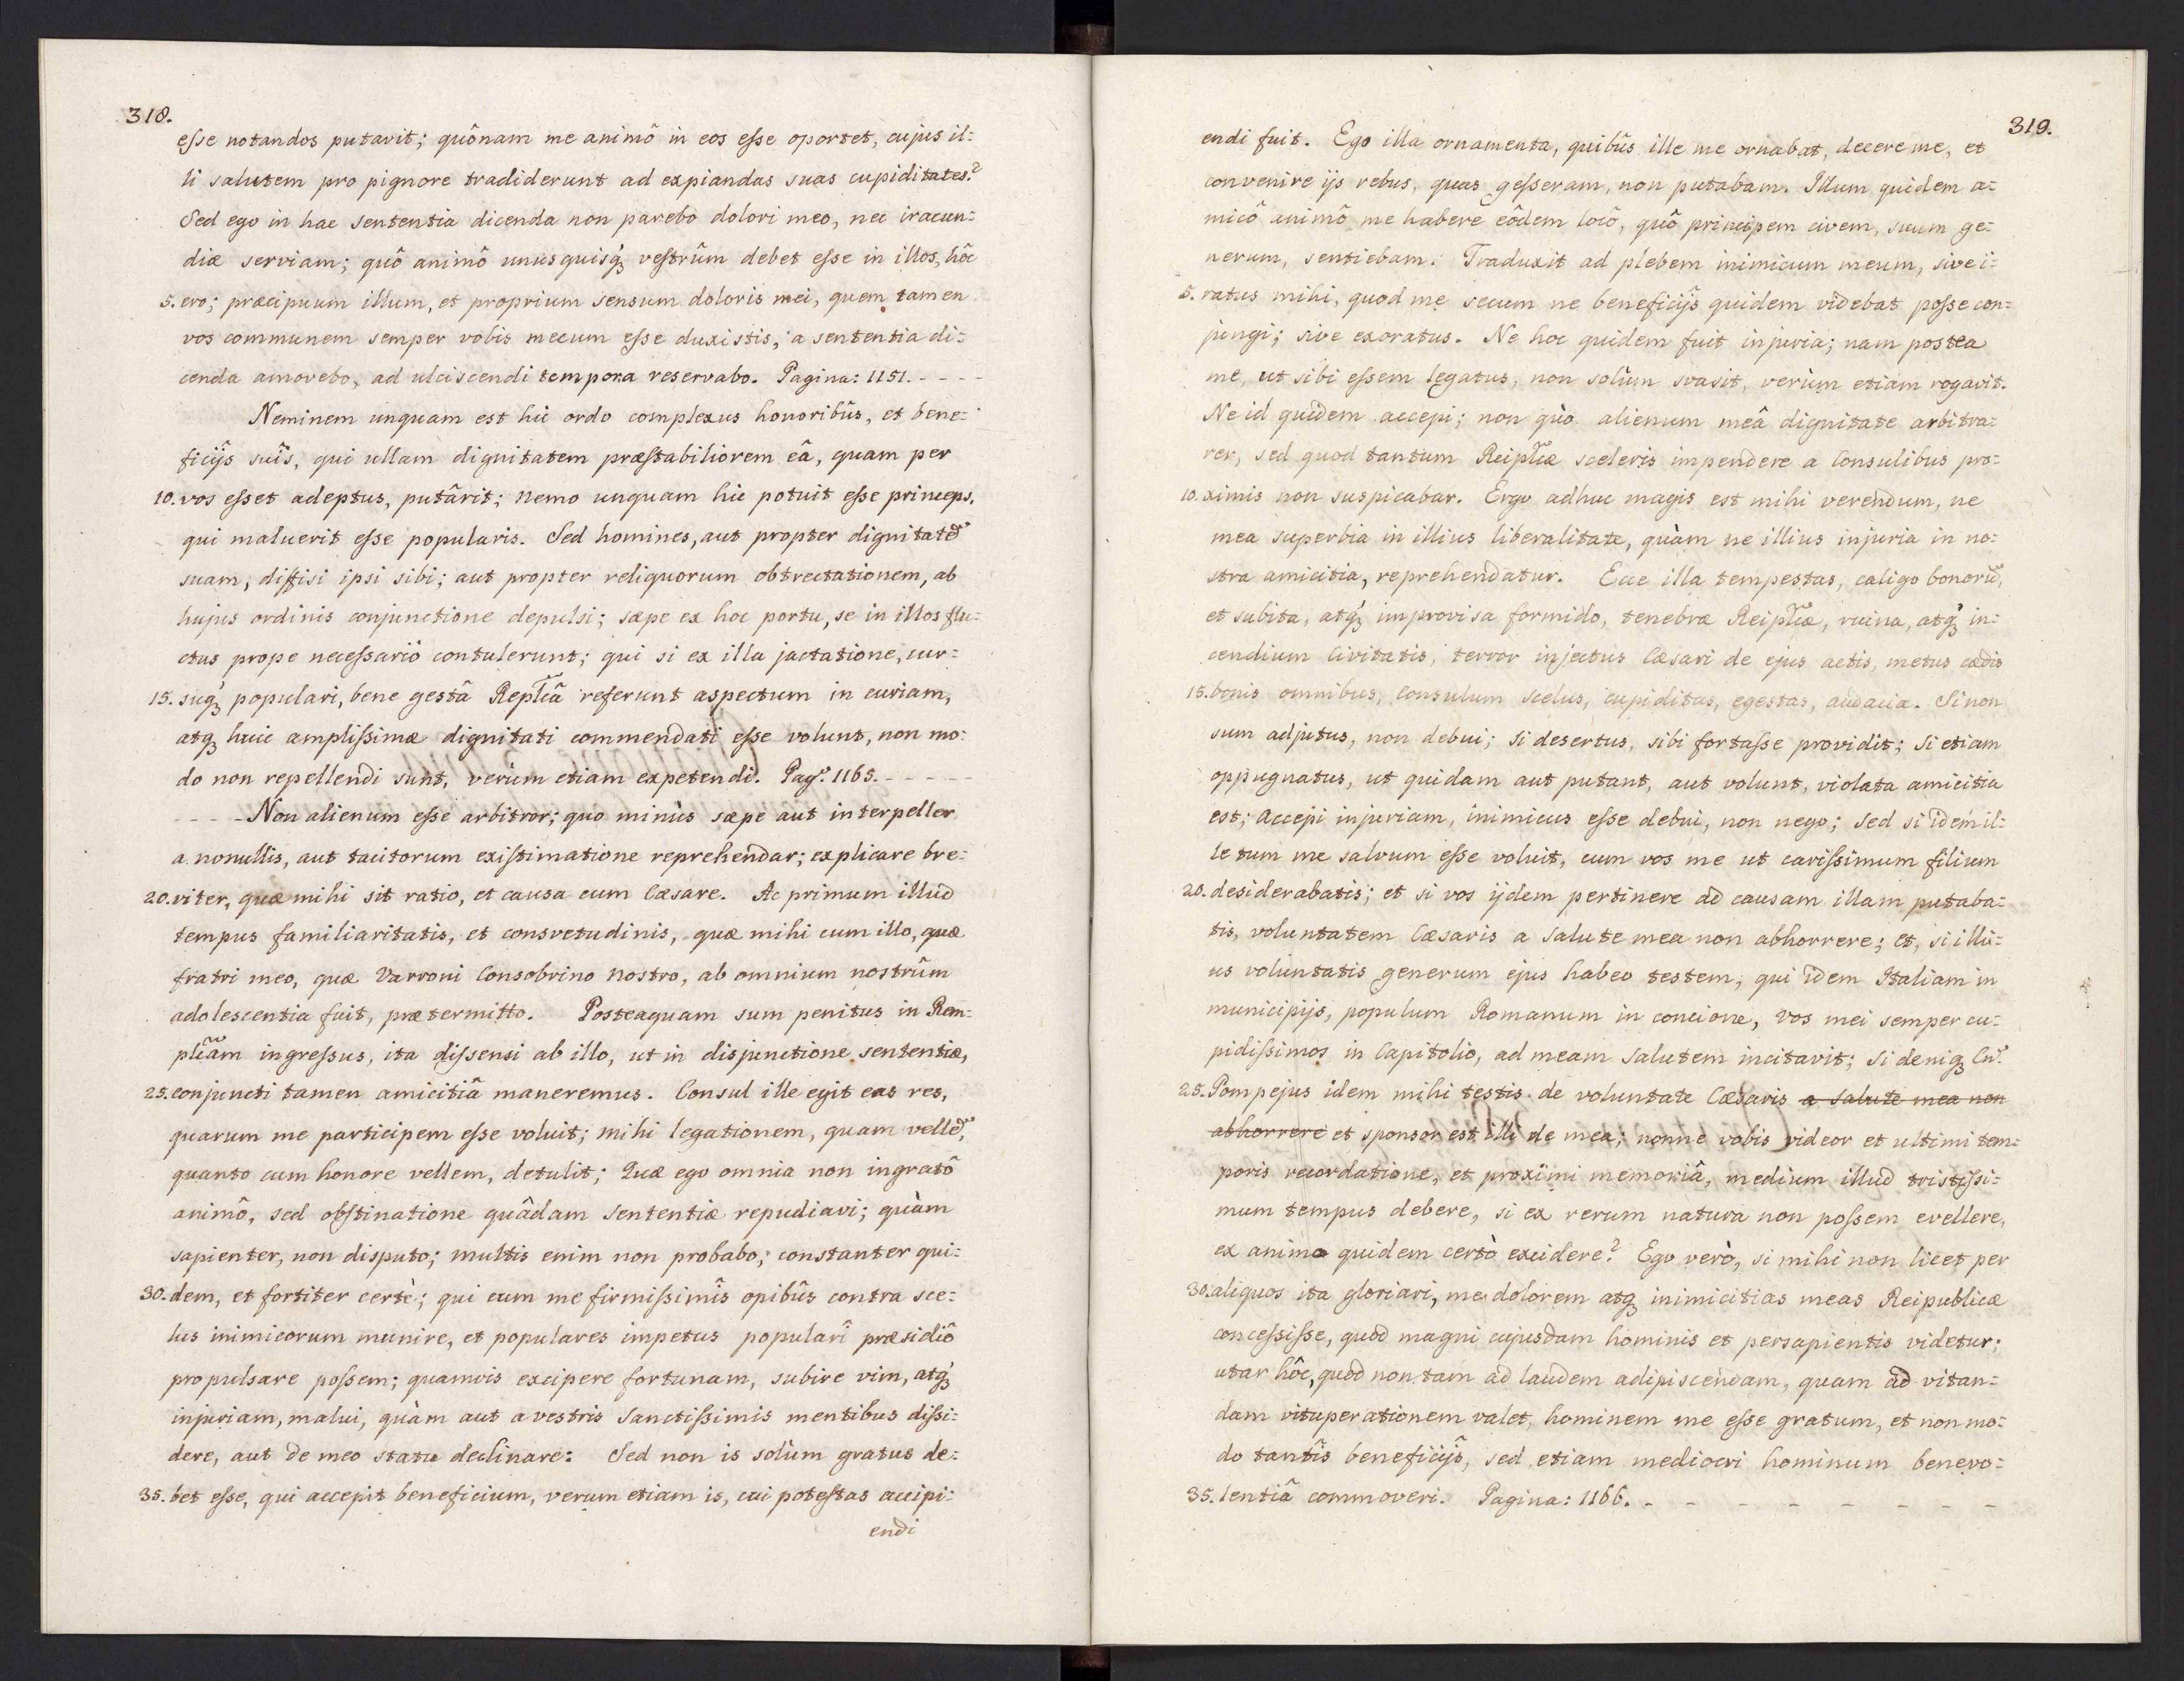 318.
esse notandos putavit; quônam me animô in eos esse oportet, cujus il=
li salutem pro pignore tradiderunt ad expiandas suas cupiditates?
Sed ego in hac sententia dicenda non parebo dolori meo, nec iracun=
diæ serviam; quô animô unusquisq́ꝫ vestrûm debet esse in illos, hôc
5. ero; præcipuum illum, et proprium sensum doloris mei, quem tamen
vos communem semper vobis mecum esse duxistis, a sententia di=
cenda amovebo, ad ulciscendi tempora reservabo. Pagina: 1151. - - - -
Neminem unquam est hic ordo complexus honoribûs, et bene=
ficijs suîs, qui ullam dignitatem præstabiliorem eâ, quam per
10. vos esset adeptus, putârit; nemo unquam hic potuit esse princeps,
qui maluerit esse popularis. Sed homines, aut propter dignitatẽ
suam, diffisi ipsi sibi; aut propter reliquorum obtrectationem, ab
hujus ordinis conjunctione depulsi; sæpe ex hoc portu, se in illos flu=
ctus prope necessariô contulerunt; qui si ex illa jactatione, cur=
15. suq́ꝫ populari, bene gestâ Repl̃câ referunt aspectum in curiam,
atqꝫ huic amplissimæ dignitati commendati esse volunt, non mo=
do non repellendi sunt, verùm etiam expetendi. Pag: 1165. - - - - -
- - - - Non alienum esse arbitror; quo minùs sæpe aut interpeller
a nonullis, aut tacitorum existimatione reprehendar; explicare bre=
20. viter, quæ mihi sit ratio, et causa cum Cæsare. Ac primum illud
tempus familiaritatis, et consvetudinis, quæ mihi cum illo, quæ
fratri meo, quæ Varroni Consobrino nostro, ab omnium nostrûm
adolescentia fuit, prætermitto. Posteaquam sum penitus in Rem=
pl̃cam ingressus, ita dissensi ab illo, ut in disjunctione sententiæ,
25. conjuncti tamen amicitiâ maneremus. Consul ille egit eas res,
quarum me participem esse voluit; mihi legationem, quam vellẽ,
quanto cum honore vellem, detulit; Quæ ego omnia non ingratô
animô, sed obstinatione quâdam sententiæ repudiavi; quàm
sapienter, non disputo; multis enim non probabo; constanter qui=
30. dem, et fortiter certè; qui cum me firmissimîs opibûs contra sce=
lus inimicorum munire, et populares impetus popularî præsidiô
propulsare possem; quamvis excipere fortunam, subire vim, atq́ꝫ
injuriam, malui, quàm aut a vestris sanctissimis mentibus dissi=
dere, aut de meo statu declinare: Sed non is solùm gratus de=
35. bet esse, qui accepit beneficium, verum etiam is, cui potestas accipi=
endi
319.
endi fuit. Ego illa ornamenta, quibûs ille me ornabat, decere me, et
convenire ijs rebus, quas gesseram, non putabam. Illum quidem a=
micô animô me habere eôdem locô, quô principem civem, suum ge=
nerum, sentiebam. Traduxit ad plebem inimicum meum, sive i=
5. ratus mihi, quod me secum ne beneficijs quidem videbat posse con=
jungi; sive exoratus. Ne hoc quidem fuit injuria; nam postea
me, ut sibi essem legatus, non solùm svasit, verùm etiam rogavit.
Ne id quidem accepi; non quò alienum meâ dignitate arbitra=
rer, sed quod tantum Reipl̃cæ sceleris impendere a Consulibus pro=
10. ximis non suspicabar. Ergo adhuc magis est mihi verendum, ne
mea superbia in illius liberalitate, quàm ne illius injuria in no=
stra amicitia, reprehendatur. Ecce illa tempestas, caligo bonorũ,
et subita, atq́ꝫ improvisa formido, tenebræ Reipl̃cæ, ruina, atq́ꝫ in=
cendium Civitatis, terror injectus Cæsari de ejus actis, metus cædis
15. bonis omnibus, Consulum scelus, cupiditas, egestas, audacia. Si non
sum adjutus, non debui; si desertus, sibi fortasse providit; si etiam
oppugnatus, ut quidam aut putant, aut volunt, violata amicitia
est; accepi injuriam, inimicus esse debui, non nego; sed si idem il=
le tum me salvum esse voluit, cum vos me ut carissimum filium
20. desiderabatis; et si vos ijdem pertinere ad causam illam putaba=
tis, voluntatem Cæsaris a salute mea non abhorrere; et, si illi=
us voluntatis generum ejus habeo testem, qui idem Italiam in
municipijs, populum Romanum in concione, vos mei semper cu=
pidissimos in Capitolio, ad meam salutem incitavit; si deniqꝫ Cn:
25. Pompejus idem mihi testis de voluntate Cæsaris a salute mea non
abhorrere et sponsor est illi de mea; nonne vobis videor et ultimi tem=
poris recordatione, et proximi memoriâ, medium illud tristissi=
mum tempus debere, si ex rerum natura non possem evellere,
ex animo quidem certò excidere? Ego verò, si mihi non licet per
30. aliquos ita gloriari, me dolorem atqꝫ inimicitias meas Reipublicæ
concessisse, quod magni cujusdam hominis et persapientis videtur;
utar hôc, quod non tam ad laudem adipiscendam, quam ad vitan=
dam vituperationem valet, hominem me esse gratum, et non mo=
do tantîs beneficijs, sed etiam mediocri hominum benevo=
35. lentiâ commoveri. Pagina: 1166. - - - - - - - -